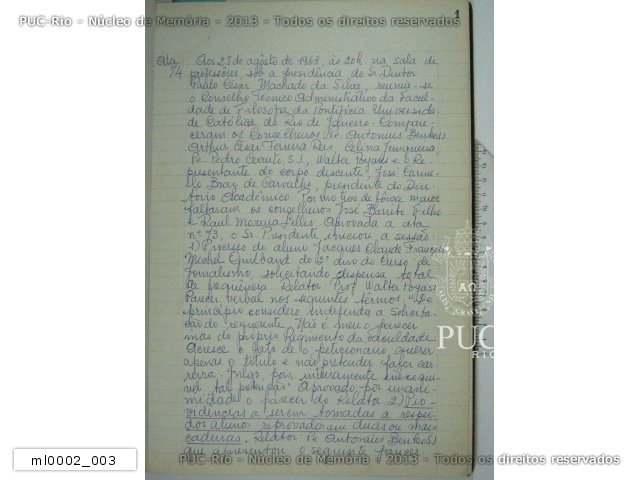 PUC-Rio - Núcleo de Memória - 2013 - Todos os direitos reservados
1
Ata Aos 28 de agôsto de 1963, às 20h. na sala de
74 professores, sob a presidência do Sr. Diretor
Paulo Cesar Machado da Silva, reuniu-se
o Conselho Técnico Administrativo da Facul-
dade de Filosofia da Pontifícia Universida-
de Católica do Rio de Janeiro. Compare-
ceram os Conselheiros Pe. Antonius Benkö
Arthur Cesar Ferreira Reis, Celina Junqueira,
Pe. Pedro S.J., Walter Poyares e o Re-
presentante do corpo discente, José Carme-
lo Braz de Carvalho, presidente do Dire-
tório Acadêmico. Por motivos de fôrça maior
faltaram os conselheiros José Barreto Filho
e Raul Moreira Lellis. Aprovada a ata
nº 73, o Sr. Presidente iniciou a sessão.
1) Processo do aluno Jacques Claude François
Michel do 2º ano do Curso de
Jornalismo, solicitando dispensa total
de freqüência. Relator Prof. Walter Poyares
Parecer verbal nos seguintes termos: "De
princípio considero indefenda a Solicita-
ção do requerente. Não é meu o parecer
mas do próprio Regimento da Faculdade
Acresce o fato de o peticionário querer
apenas o título e não pretender fazer car-
reira. Julgo, pois, inteiramente inexequí-
vel tal pedido." Aprovado por unani-
midade o parecer do Relator 2) Pro-
vidências a serem tomadas a respei-
to dos alunos reprovados em duas ou mais
cadeiras. Relator: Pe Antonius Benkö SJ
que apresentou o seguinte parecer
PUC
RIO
ml0002_003
PUC-Rio - Núcleo de Memória - 2013 - Todos os direitos reservados